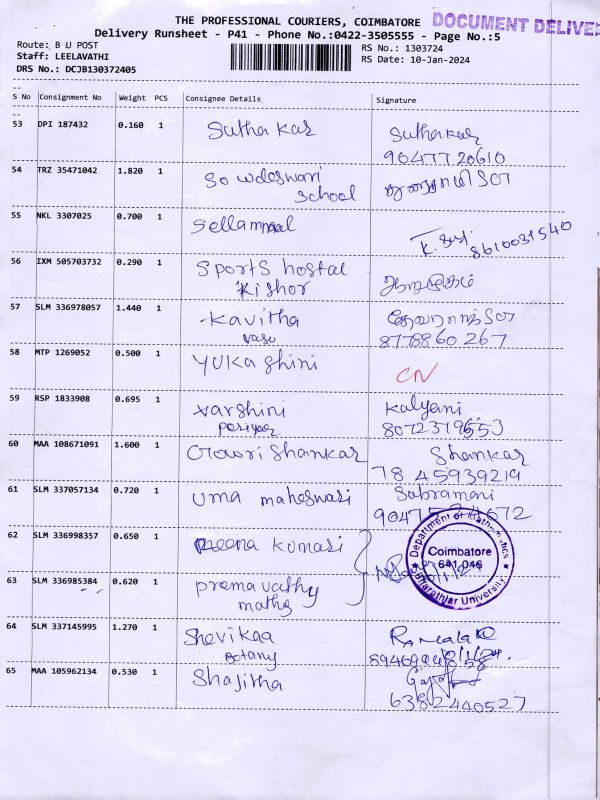 THE PROFESSIONAL COURIERS, COIMBATORE
DOCUMENT DELIVE
Delivery Runsheet - P41 - Phone No.:0422-3505555 - Page No.:5
Route: B U POST
RS No.: 1303724
Staff: LEELAVATHI
RS Date: 10-Jan-2024
DRS No.: DCJB130372405
S No Consignment No Weight PCS Consignee Details Signature
53 DPI 187432 0.160 1 Suthakar Suthakar
9047720610
54 TRZ 35471042 1.820 1 Sowdeswari
School
55 NKL 3307025 0.700 1 Sellammal
8610031540
56 IXM 505703732 0.290 1 Sports hostal
Kishor
57 SLM 336978057 1.440 1 Kavitha
vasu 8778860267
58 MTP 1269052 0.500 1 YUKashini CN
59 RSP 1833908 0.695 1 Varshini Kalyani
Periyar 8072379553
60 MAA 108671091 1.600 1 Gowri Shankar Shankar
7845939219
61 SLM 337057134 0.720 1 Uma maheswari Subramani
62 SLM 336998357 0.650 1 Meena Kumari
63 SLM 336985384 0.620 1 Premavathy
maths
Department of Mathematics
Coimbatore
641 046
Bharathiar University
64 SLM 337145995 1.270 1 Shevikaa
Botany
65 MAA 105962134 0.530 1 Shajitha
6382440527